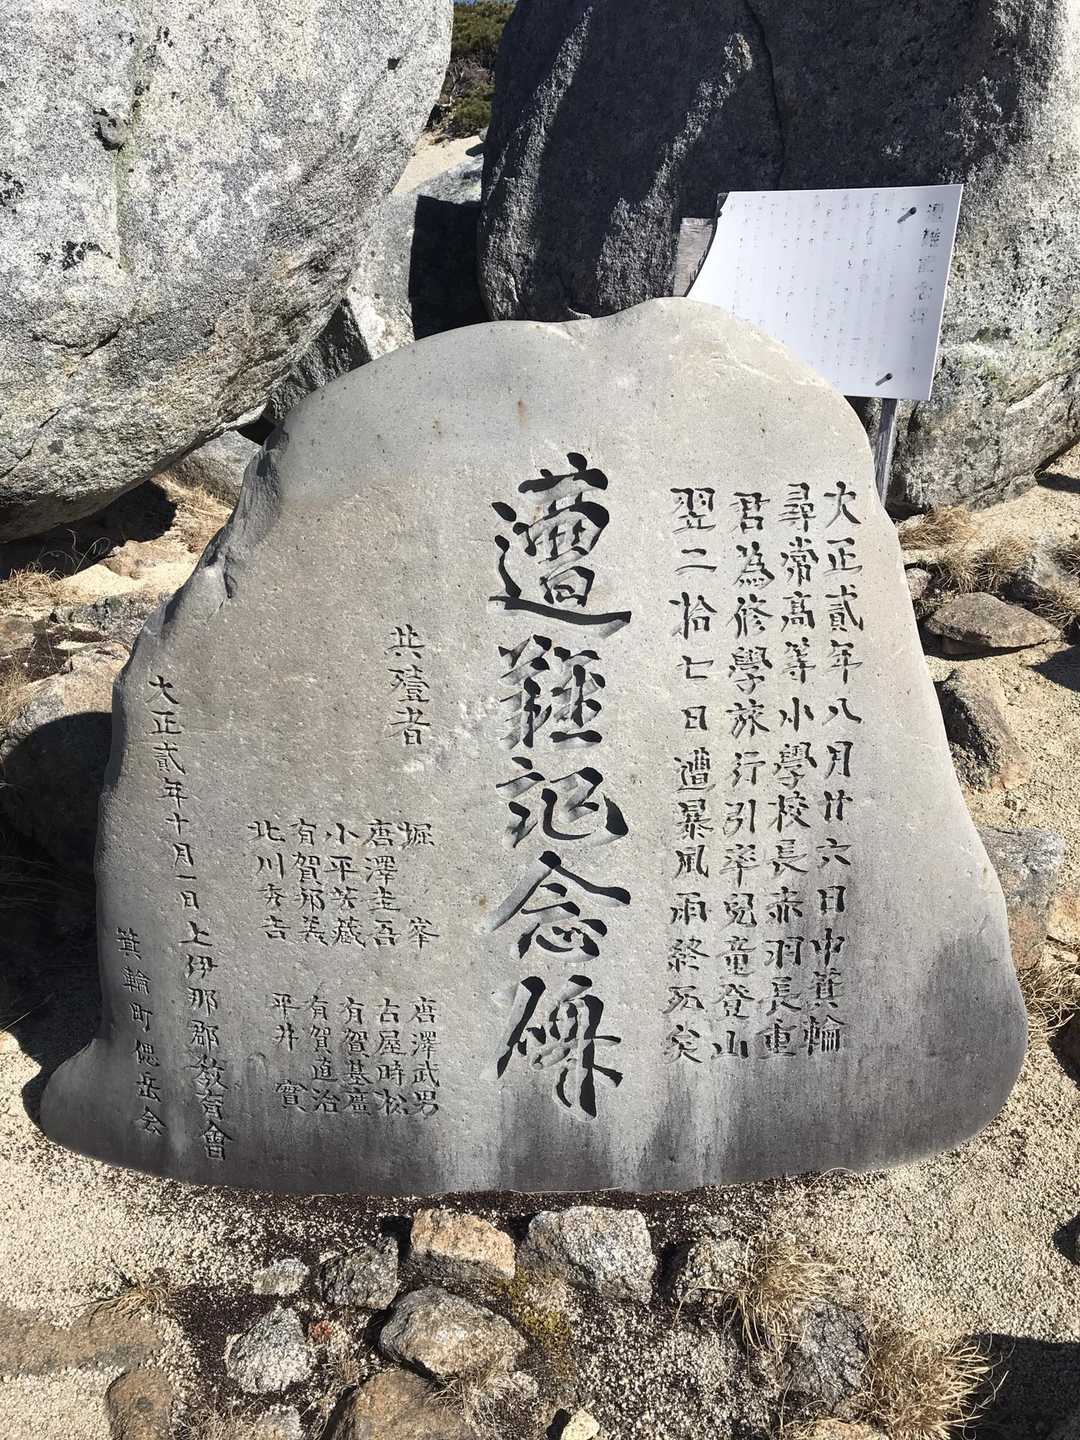 大正貳年八月廿六日中箕輪
尋常高等小學校長赤羽長重
君為修學旅行引率兒童登山
翌二拾七日遭暴風雨終死矣
遭難記念碑
共殪者
堀 峯 唐澤武男
唐澤圭吾 古屋時松
小平芳蔵 有賀基廣
有賀邦美 有賀直治
北川秀吉 平井 實
大正貳年十月一日上伊那郡教育會
箕輪町偲岳会
遭難記念碑